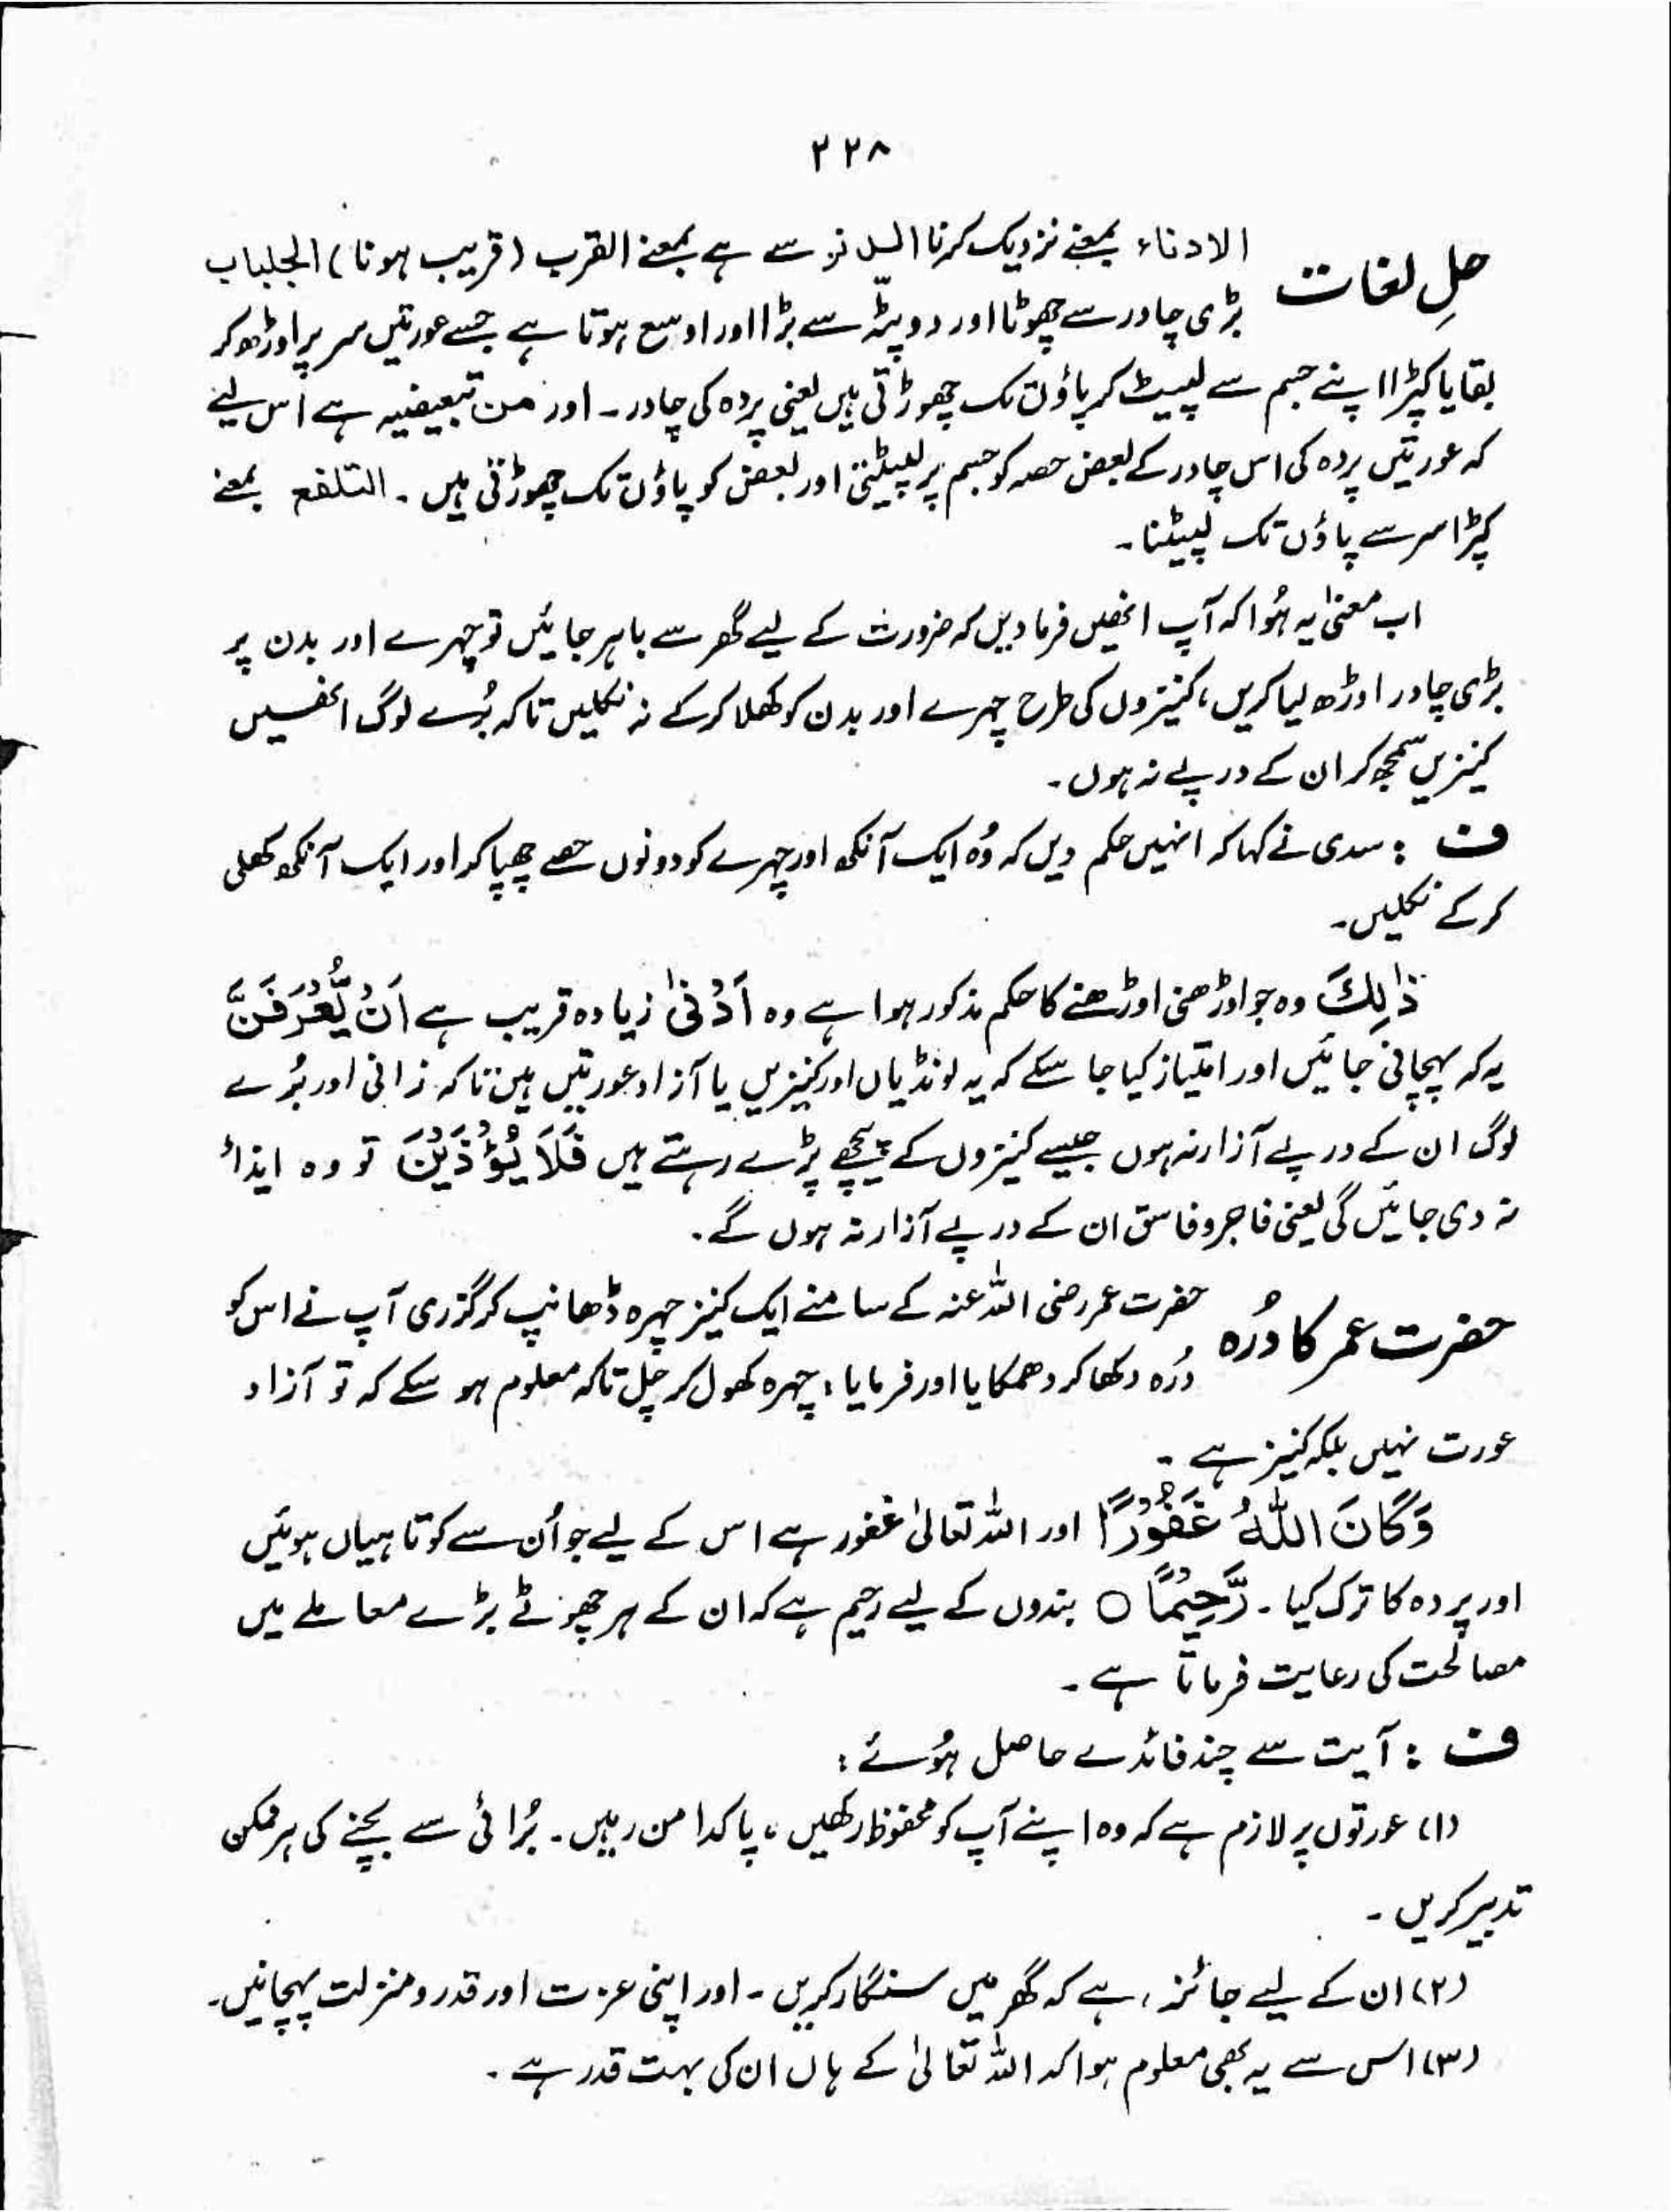 ۲۲۸
حلِ لغات الادناء بمعنے نزدیک کرنا الدنو سے ہے بمعنے القرب (قریب ہونا) الجلباب
بڑی چادر سے چھوٹا اور دوپٹہ سے بڑا اور اوسع ہوتا ہے جسے عورتیں سر پر اوڑھ کر
بقایا کپڑا اپنے جسم سے لپیٹ کر پاؤں تک چھوڑتی ہیں یعنی پردہ کی چادر۔ اور من تبعیضیہ ہے اس لیے
کہ عورتیں پردہ کی اس چادر کے بعض حصہ کو جسم پر لپیٹتی اور بعض کو پاؤں تک چھوڑتی ہیں۔ التلفع بمعنے
کپڑا سر سے پاؤں تک لپیٹنا۔
اب معنیٰ یہ ہُوا کہ آپ انھیں فرما دیں کہ ضرورت کے لیے گھر سے باہر جائیں تو چہرے اور بدن پر
بڑی چادر اوڑھ لیا کریں، کنیزوں کی طرح چہرے اور بدن کو کھلا کرکے نہ نکلیں تاکہ بُرے لوگ انھیں
کنیزیں سمجھ کر ان کے درپے نہ ہوں۔
ف : سدی نے کہا کہ انہیں حکم دیں کہ وُہ ایک آنکھ اور چہرے کو دونوں حصے چھپا کر اور ایک آنکھ کھلی
کرکے نکلیں۔
ذٰلِكَ وہ جو اوڑھنی اوڑھنے کا حکم مذکور ہوا ہے وہ اَدْنٰی زیادہ قریب ہے اَنْ یُّعْرَفْنَ
یہ کہ پہچانی جائیں اور امتیاز کیا جا سکے کہ یہ لونڈیاں اور کنیزیں یا آزاد عورتیں ہیں تاکہ زانی اور بُرے
لوگ ان کے درپے آزار نہ ہوں جیسے کنیزوں کے پیچھے پڑے رہتے ہیں فَلَا یُؤْذَیْنَ تو وہ ایذاء
نہ دی جائیں گی یعنی فاجر و فاسق ان کے درپے آزار نہ ہوں گے۔
حضرت عمر کا دُرہ حضرت عمر رضی اللہ عنہ کے سامنے ایک کنیز چہرہ ڈھانپ کر گزری آپ نے اس کو
دُرہ دکھا کر دھمکایا اور فرمایا : چہرہ کھول کر چل تاکہ معلوم ہو سکے کہ تو آزاد
عورت نہیں بلکہ کنیز ہے۔
وَكَانَ اللّٰهُ غَفُوْرًا اور اللہ تعالیٰ غفور ہے اس کے لیے جو اُن سے کوتاہیاں ہوئیں
اور پردہ کا ترک کیا۔ رَّحِیْمًا ○ بندوں کے لیے رحیم ہے کہ ان کے ہر چھوٹے بڑے معاملے میں
مصالحت کی رعایت فرماتا ہے۔
ف : آیت سے چند فائدے حاصل ہُوئے :
(۱) عورتوں پر لازم ہے کہ وہ اپنے آپ کو محفوظ رکھیں، پاکدامن رہیں۔ بُرائی سے بچنے کی ہر ممکن
تدبیر کریں۔
(۲) ان کے لیے جائز ہے کہ گھر میں سنگار کریں۔ اور اپنی عزت اور قدر و منزلت پہچانیں۔
(۳) اس سے یہ بھی معلوم ہوا کہ اللہ تعالیٰ کے ہاں ان کی بہت قدر ہے۔